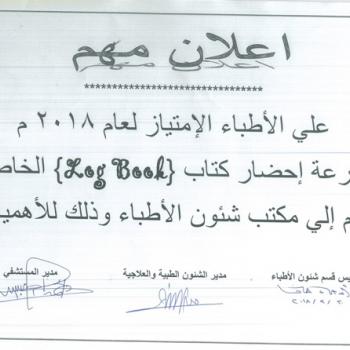 اعلان مهم
********************************
علي الأطباء الإمتياز لعام ٢٠١٨ م
رعة إحضار كتاب {Log Book} الخاص
م إلي مكتب شئون الأطباء وذلك للأهمي
يس قسم شئون الأطباء مدير الشئون الطبية والعلاجية مدير المستشفي